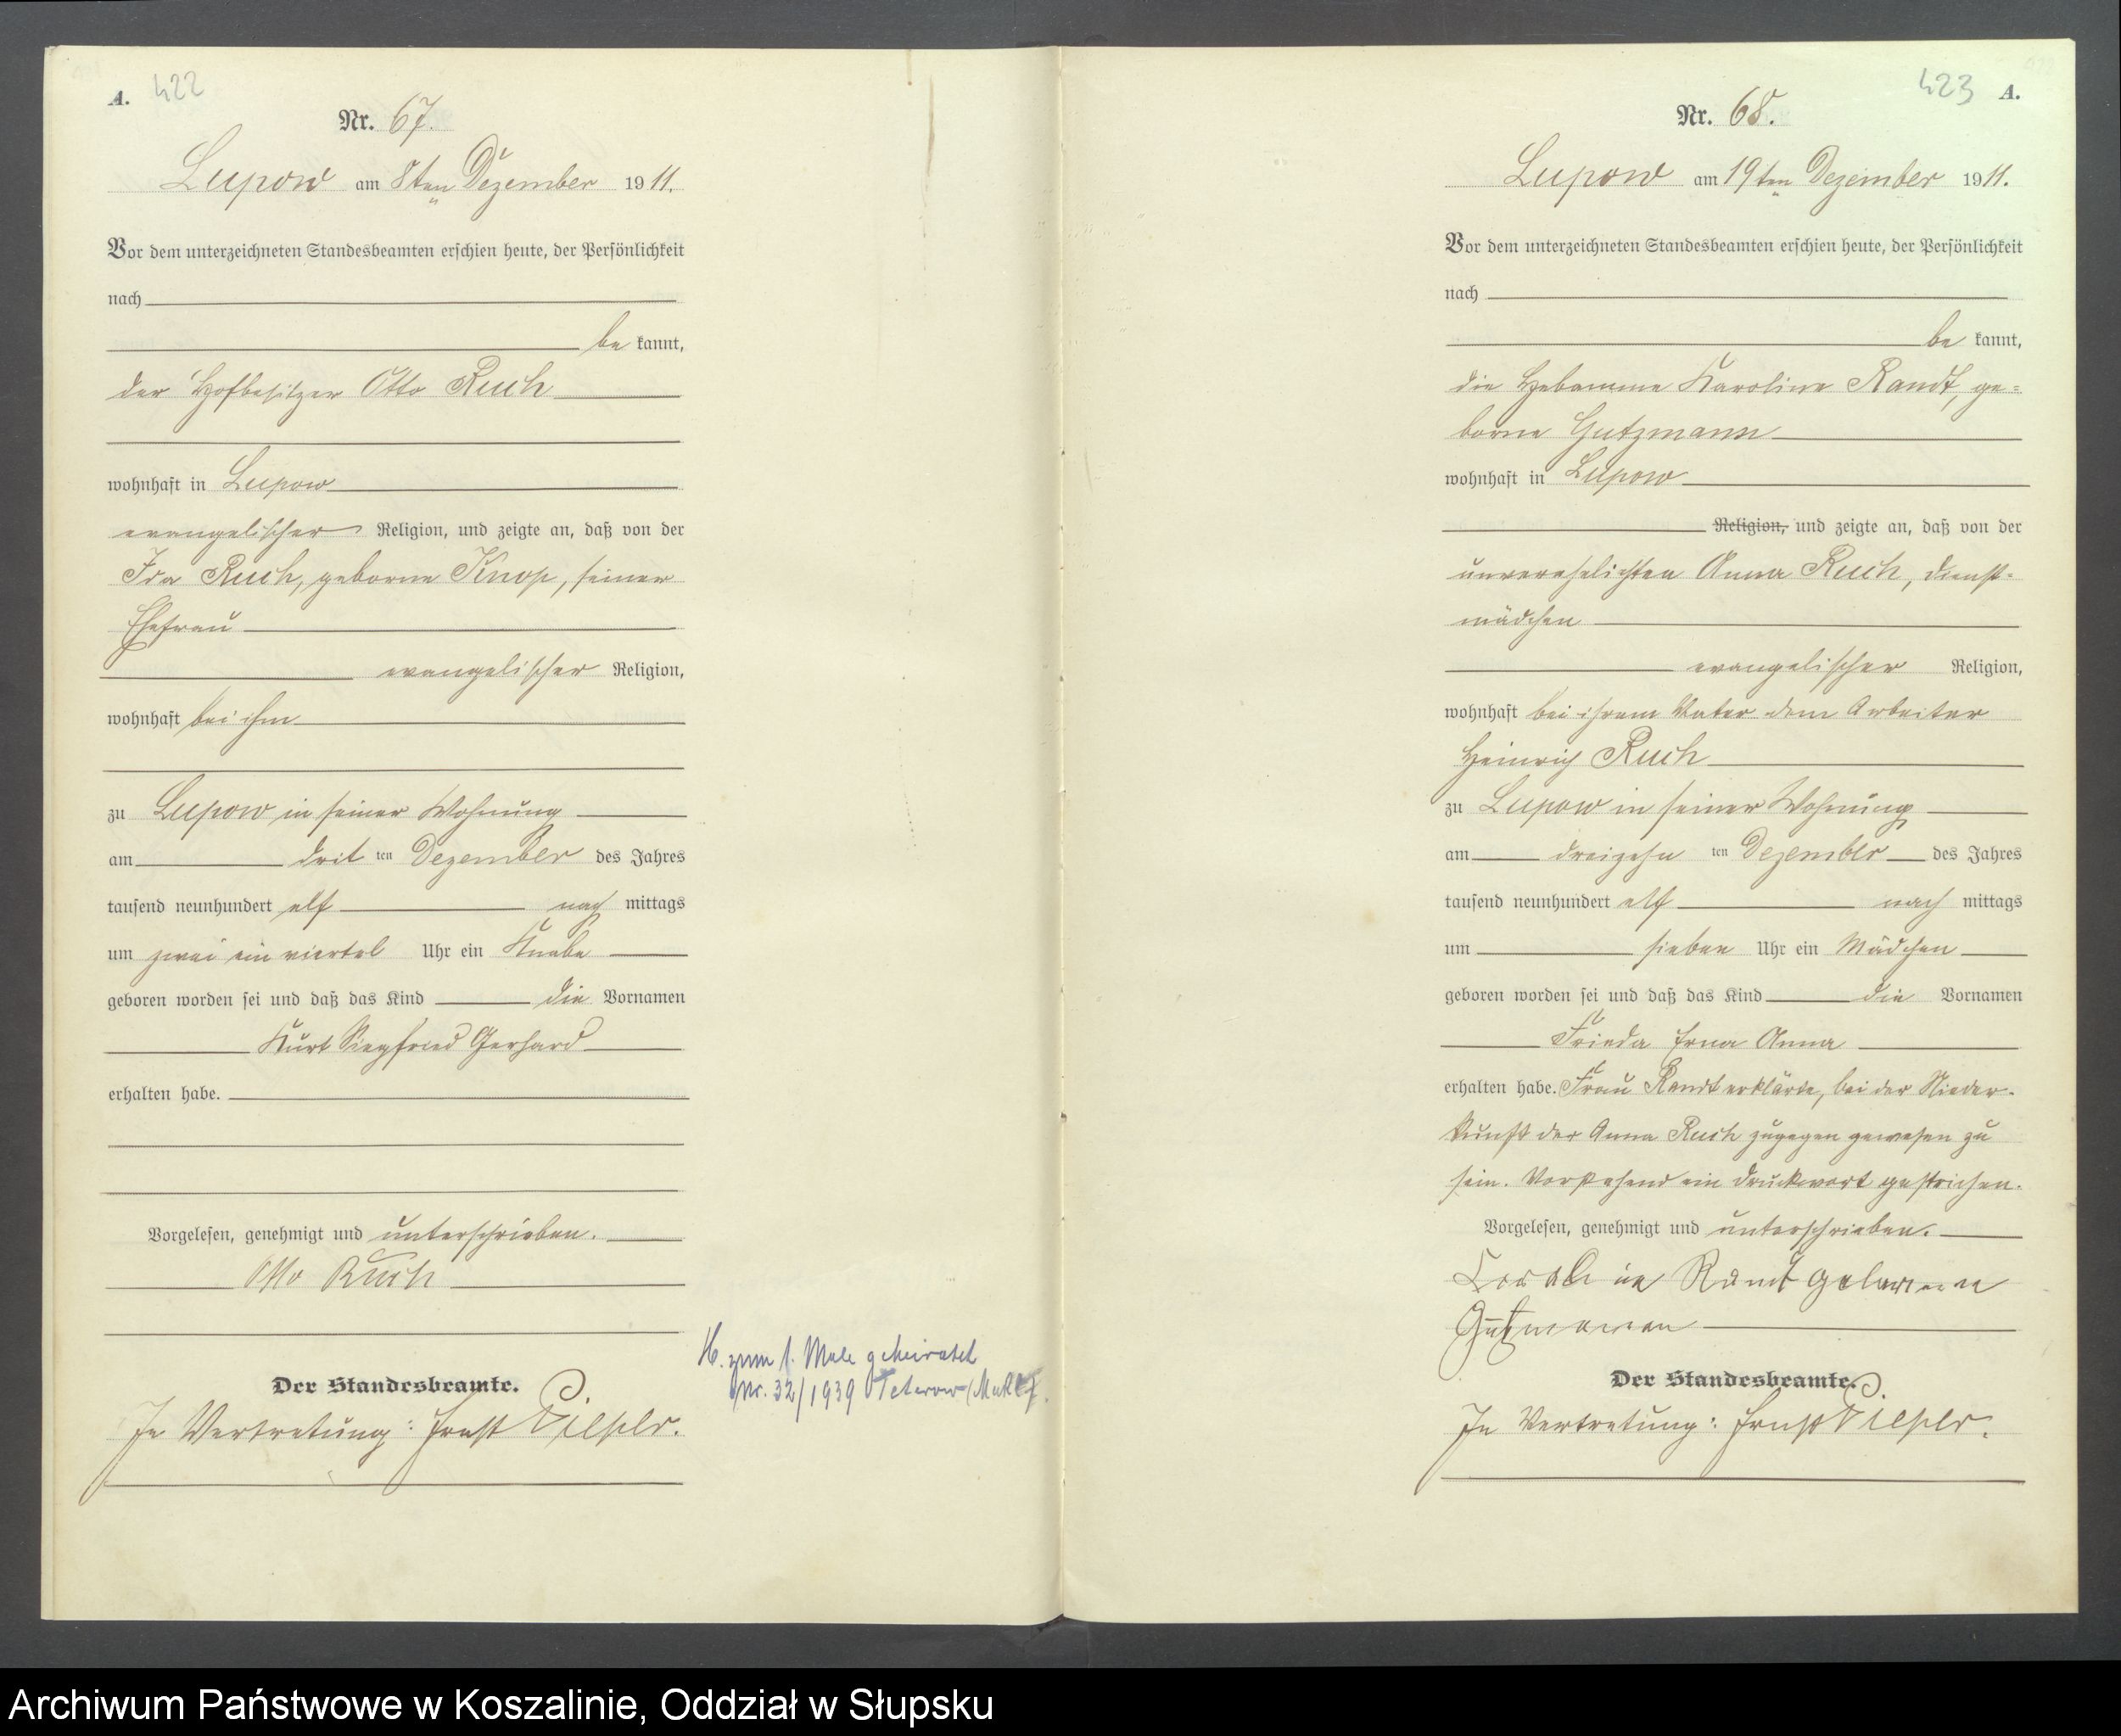 A. 422
Nr. 67.
Lupow am 8ten Dezember 1911.
Vor dem unterzeichneten Standesbeamten erschien heute, der Persönlichkeit
nach
be kannt,
der Hofbesitzer Otto Ruch
wohnhaft in Lupow
evangelischer Religion, und zeigte an, daß von der
Ida Ruch, geborne Knop, seiner
Ehefrau
evangelischer Religion,
wohnhaft bei ihm
zu Lupow in seiner Wohnung
am drit ten Dezember des Jahres
tausend neunhundert elf nach mittags
um zwei ein viertel Uhr ein Knabe
geboren worden sei und daß das Kind die Vornamen
Kurt Siegfried Gerhard
erhalten habe.
Vorgelesen, genehmigt und unterschrieben.
Otto Ruch
Der Standesbeamte.
In Vertretung: Ernst
H. zum 1. Male geheiratet
Nr. 32/1939 Teterow (Meckl).
423 A.
Nr. 68.
Lupow am 19ten Dezember 1911.
Vor dem unterzeichneten Standesbeamten erschien heute, der Persönlichkeit
nach
be kannt,
die Hebamme Karoline Randt, ge=
borne Gutzmann
wohnhaft in Lupow
Religion, und zeigte an, daß von der
unverehelichten Anna Ruch, Dienst=
mädchen
evangelischer Religion,
wohnhaft bei ihrem Vater dem Arbeiter
Heinrich Ruch
zu Lupow in seiner Wohnung
am dreizehn ten Dezember des Jahres
tausend neunhundert elf nach mittags
um sieben Uhr ein Mädchen
geboren worden sei und daß das Kind die Vornamen
Frieda Erna Anna
erhalten habe. Frau Randt erklärte, bei der Nieder-
kunft der Anna Ruch zugegen gewesen zu
sein. Vorstehend ein Druckwort gestrichen.
Vorgelesen, genehmigt und unterschrieben.
Randt
Der Standesbeamte.
In Vertretung: Ernst
Archiwum Państwowe w Koszalinie, Oddział w Słupsku